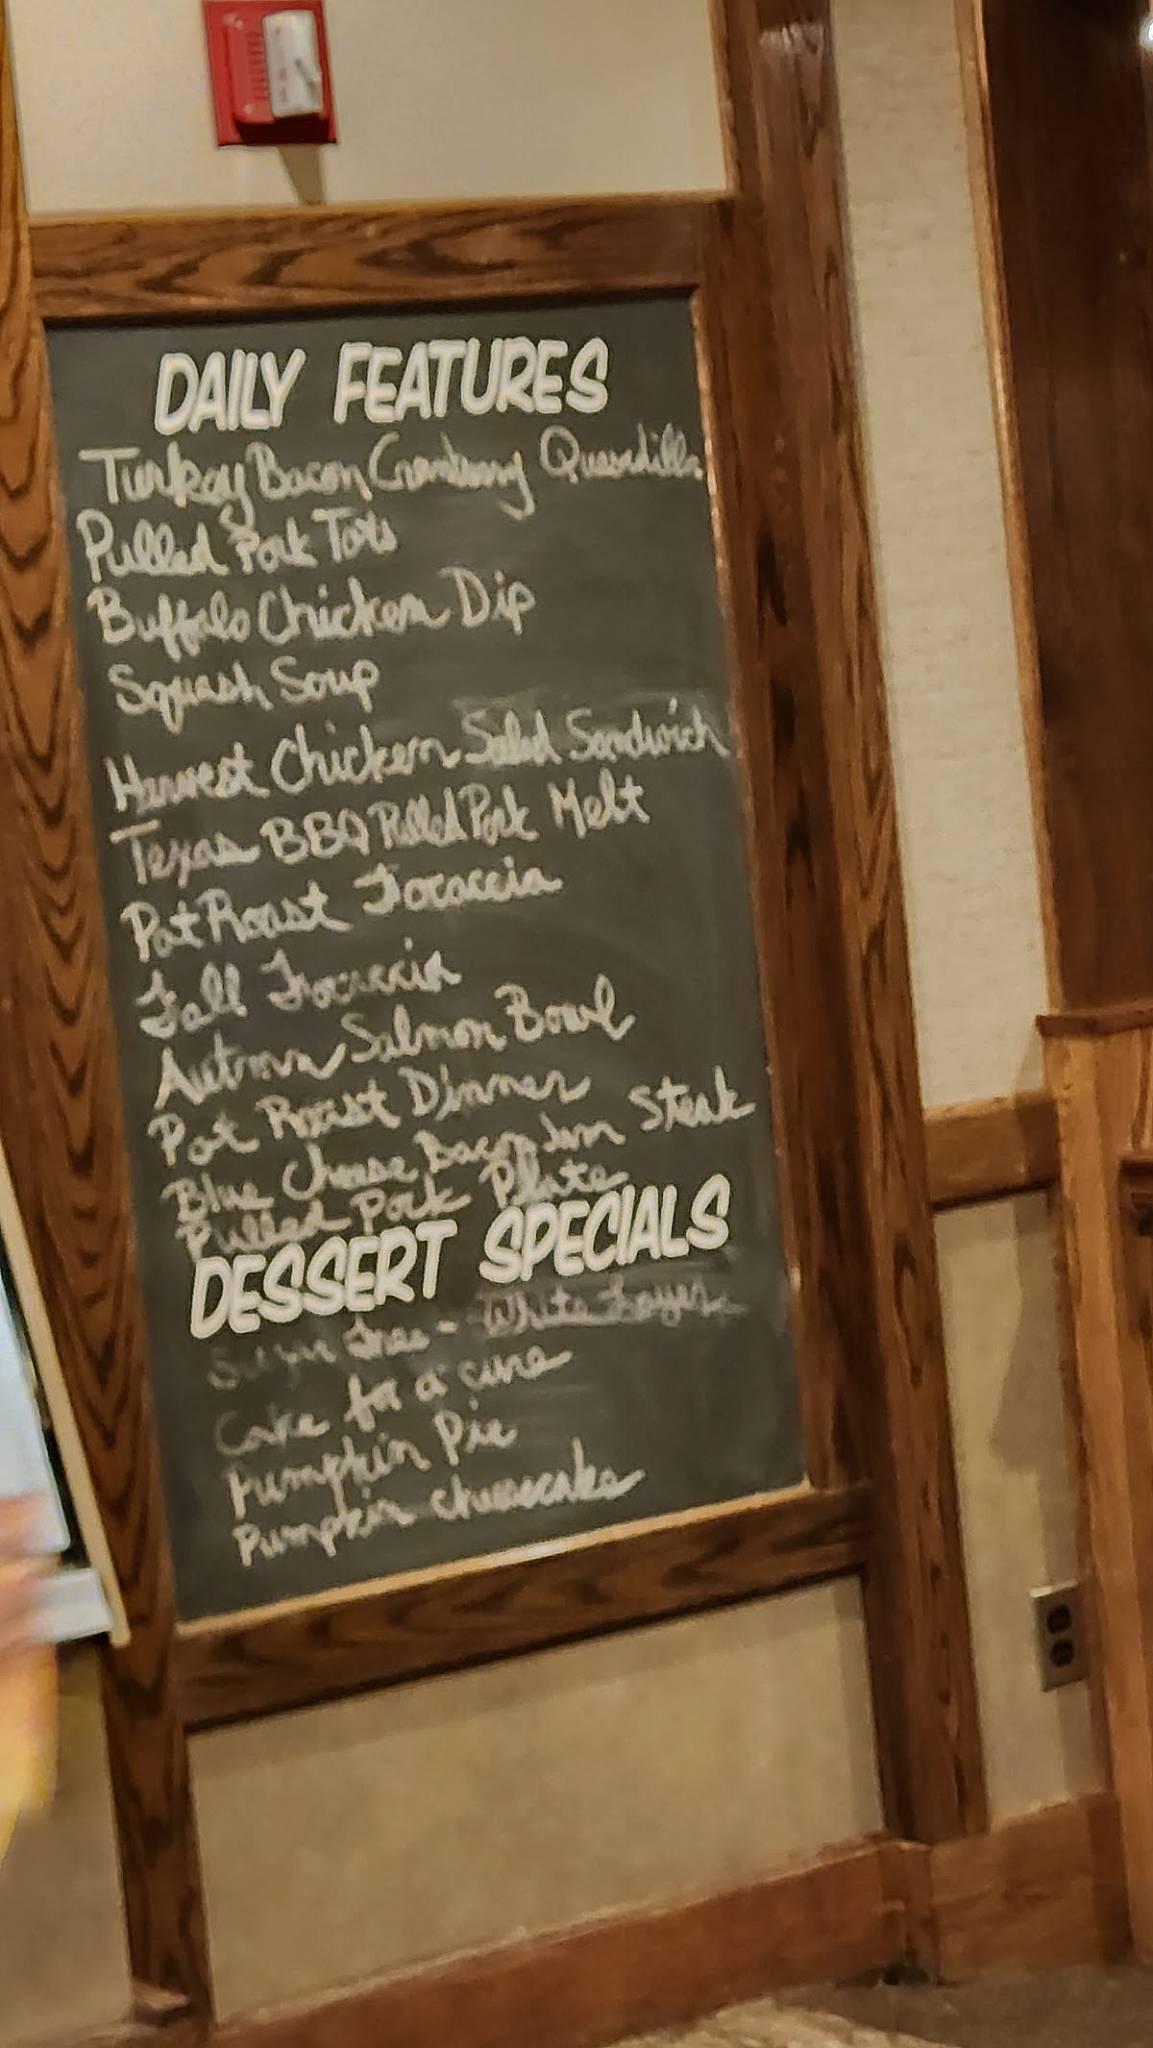 DAILY FEATURES
Turkey Bacon Cranberry Quesadilla
Pulled Pork Tots
Buffalo Chicken Dip
Squash Soup
Harvest Chicken Salad Sandwich
Texas BBQ Pulled Pork Melt
Pot Roast Focaccia
Fall Focaccia
Autumn Salmon Bowl
Pot Roast Dinner
Blue Cheese Bacon Jam Steak
Pulled Pork Plate
DESSERT SPECIALS
Sugar Free - White Layer
Cake for a cure
Pumpkin Pie
Pumpkin cheesecake